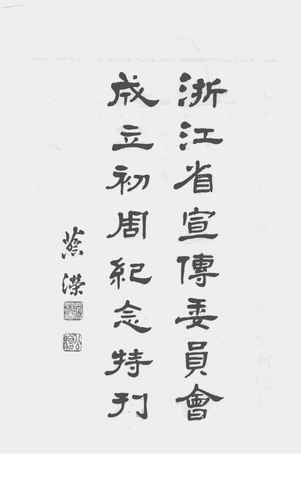 浙江省宣傳委員會
成立初周紀念特刊